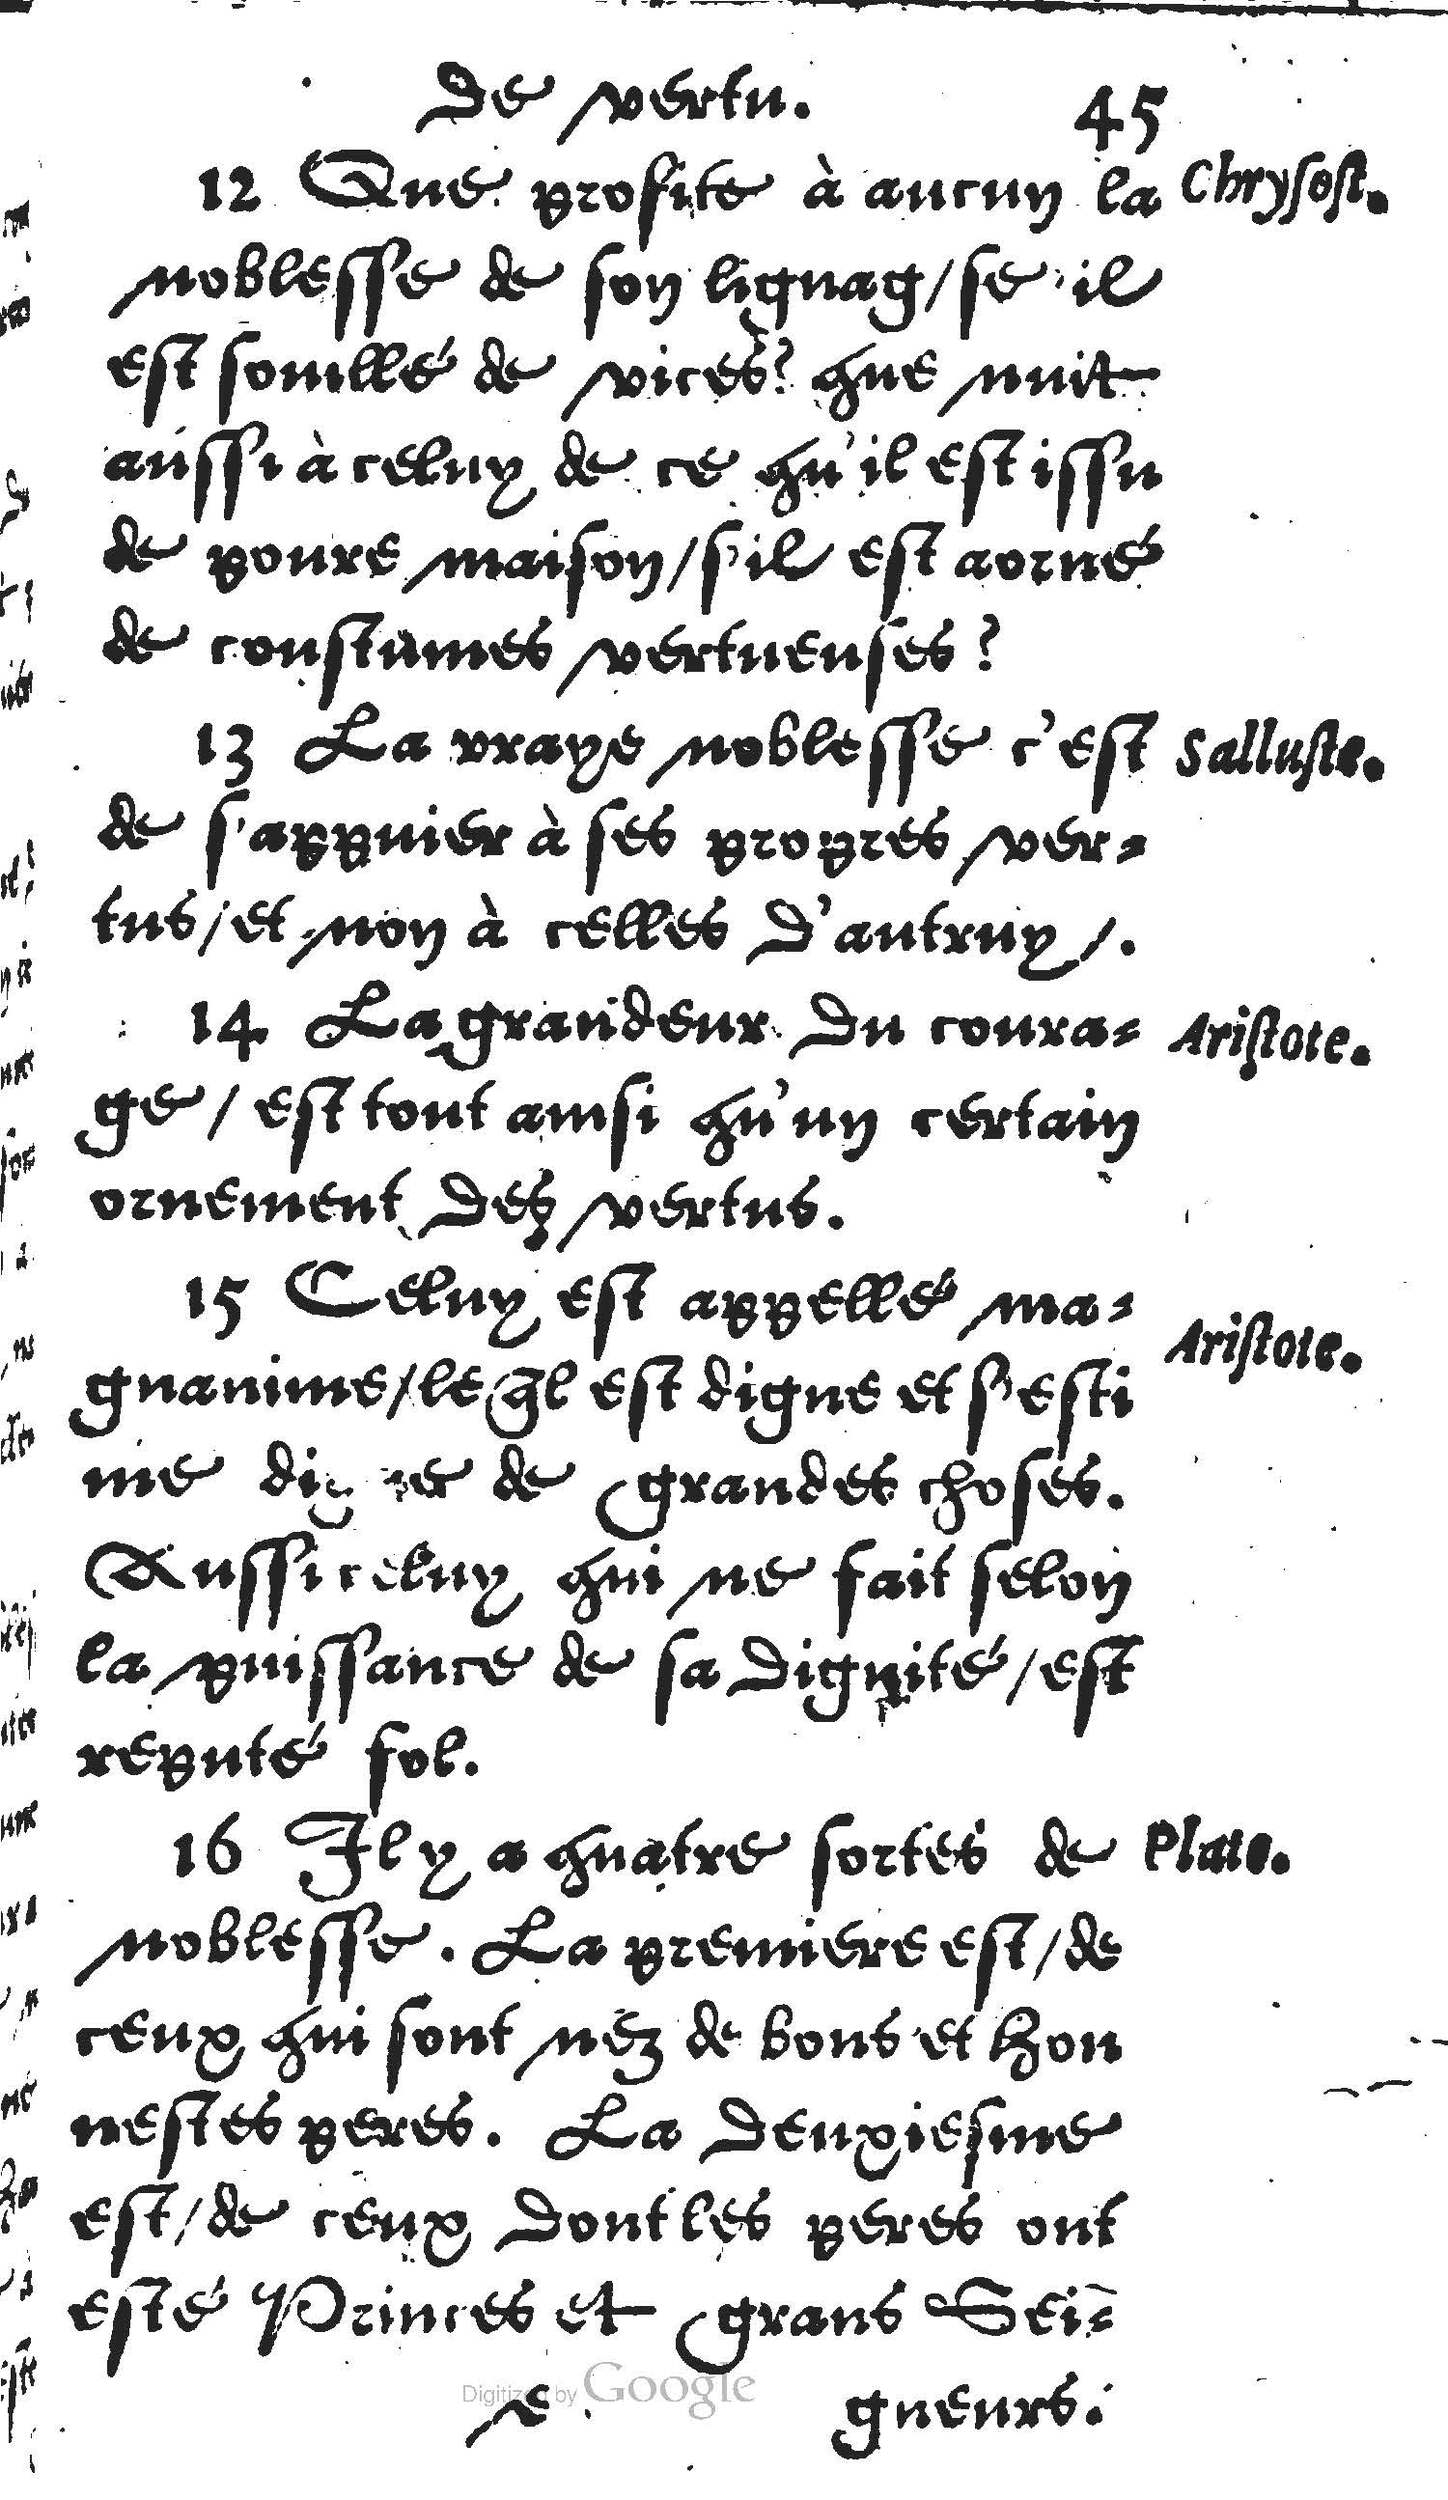 De vertu. 45
12 Que profite à aucun la Chrysost.
noblesse de son lignag/se il
est souillé de vices? que nuit
aussi à celuy de ce qu'il est issu
de poure maison/s'il est aorné
de coustumes vertueuses?
13 La vraye noblesse c'est Salluste.
de s'appuier à ses propres ver-
tus/et non à celles d'autruy/.
14 La grandeur du coura- Aristote.
ge/est tout ainsi qu'un certain
ornement des vertus.
15 Celuy est appellé ma- Aristote.
gnanime/leql est digne et s'esti
me digne de grandes choses.
Aussi celuy qui ne fait selon
la puissance de sa dignité/est
reputé fol.
16 Il y a quatre sortes de Plato.
noblesse. La premiere est/de
ceux qui sont nez de bons et hon
nestes peres. La deuxiesme
est/de ceux dont les peres ont
esté Princes et grans Sei-
e gneurs.
Digitized by Google